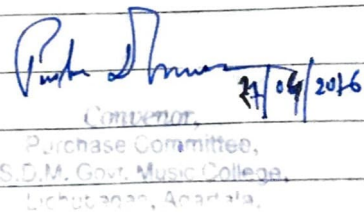 27/04/2016
Convenor,
Purchase Committee,
S.D.M. Govt. Music College,
Lichubagan, Agartala,